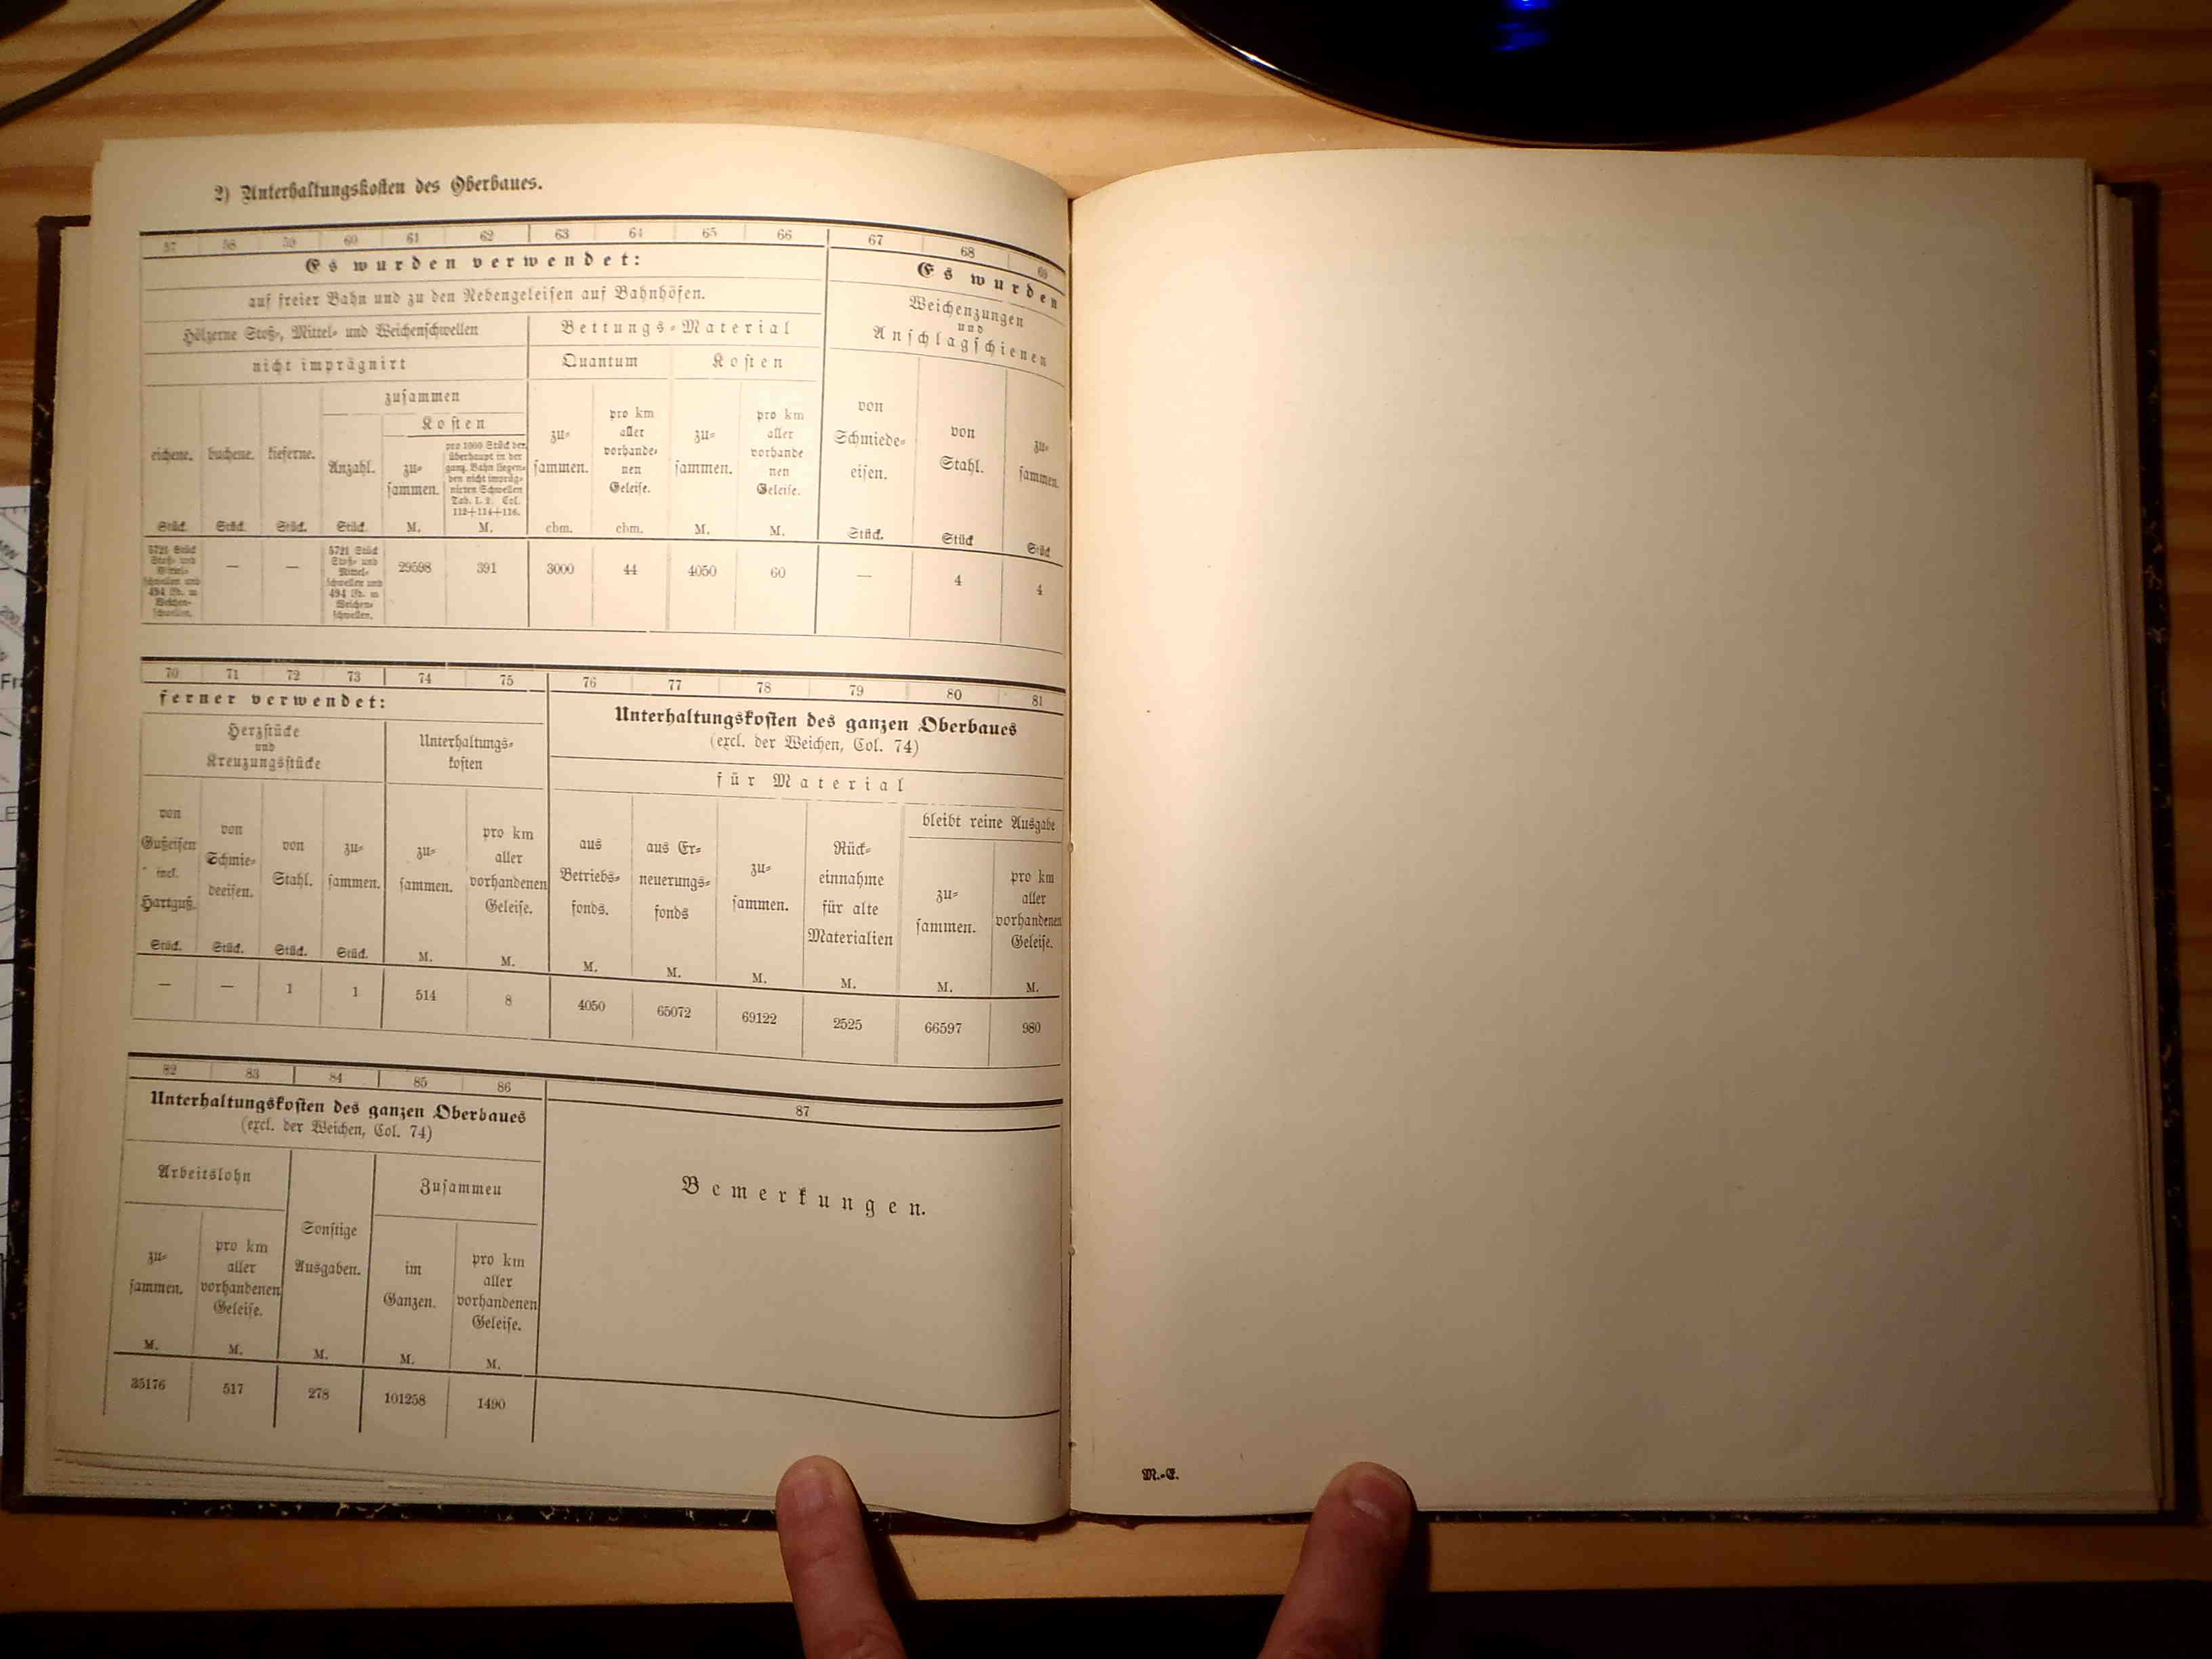 2) Unterhaltungskosten des Oberbaues.
57 58 59 60 61 62 63 64 65 66 67 68 69
Es wurden verwendet:
Es wurden
auf freier Bahn und zu den Nebengeleisen auf Bahnhöfen.
Weichenzungen
und
Anschlagschienen
Hölzerne Stoß-, Mittel- und Weichenschwellen
Bettungs-Material
nicht imprägnirt
Quantum
Kosten
zusammen
Kosten
eichene.
buchene.
kieferne.
Anzahl.
zu-
sammen.
pro 1000 Stück der
überhaupt in der
ganz. Bahn liegen-
den nicht impräg-
nirten Schwellen
Tab. I. 2. Col.
112+114+116.
zu-
sammen.
pro km
aller
vorhande-
nen
Geleise.
zu-
sammen.
pro km
aller
vorhande
nen
Geleise.
von
Schmiede-
eisen.
von
Stahl.
zu-
sammen.
Stück. Stück. Stück. Stück. M. M. cbm. cbm. M. M. Stück. Stück Stück
5721 Stück
Stoß- und
Mittel-
schwellen und
494 lfd. m
Weichen-
schwellen.
—
—
5721 Stück
Stoß- und
Mittel-
schwellen und
494 lfd. m
Weichen-
schwellen.
29598 391 3000 44 4050 60 — 4 4
70 71 72 73 74 75 76 77 78 79 80 81
ferner verwendet:
Unterhaltungskosten des ganzen Oberbaues
(excl. der Weichen, Col. 74)
Herzstücke
und
Kreuzungsstücke
Unterhaltungs-
kosten
für Material
bleibt reine Ausgabe
von
Gußeisen
incl.
Hartguß.
von
Schmie-
deeisen.
von
Stahl.
zu-
sammen.
zu-
sammen.
pro km
aller
vorhandenen
Geleise.
aus
Betriebs-
fonds.
aus Er-
neuerungs-
fonds
zu-
sammen.
Rück-
einnahme
für alte
Materialien
zu-
sammen.
pro km
aller
vorhandenen
Geleise.
Stück. Stück. Stück. Stück. M. M. M. M. M. M. M. M.
— — 1 1 514 8 4050 65072 69122 2525 66597 980
82 83 84 85 86 87
Unterhaltungskosten des ganzen Oberbaues
(excl. der Weichen, Col. 74)
Arbeitslohn
Zusammeu
Bemerkungen.
zu-
sammen.
pro km
aller
vorhandenen
Geleise.
Sonstige
Ausgaben.
im
Ganzen.
pro km
aller
vorhandenen
Geleise.
M. M. M. M. M.
35176 517 278 101258 1490
M.-E.